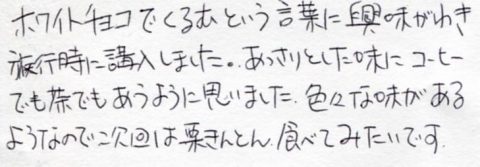 ホワイトチョコでくるむという言葉に興味がわき
旅行時に購入しました。あっさりとした味にコーヒー
でも茶でもあうように思いました。色々な味がある
ようなので次回は栗きんとん、食べてみたいです。